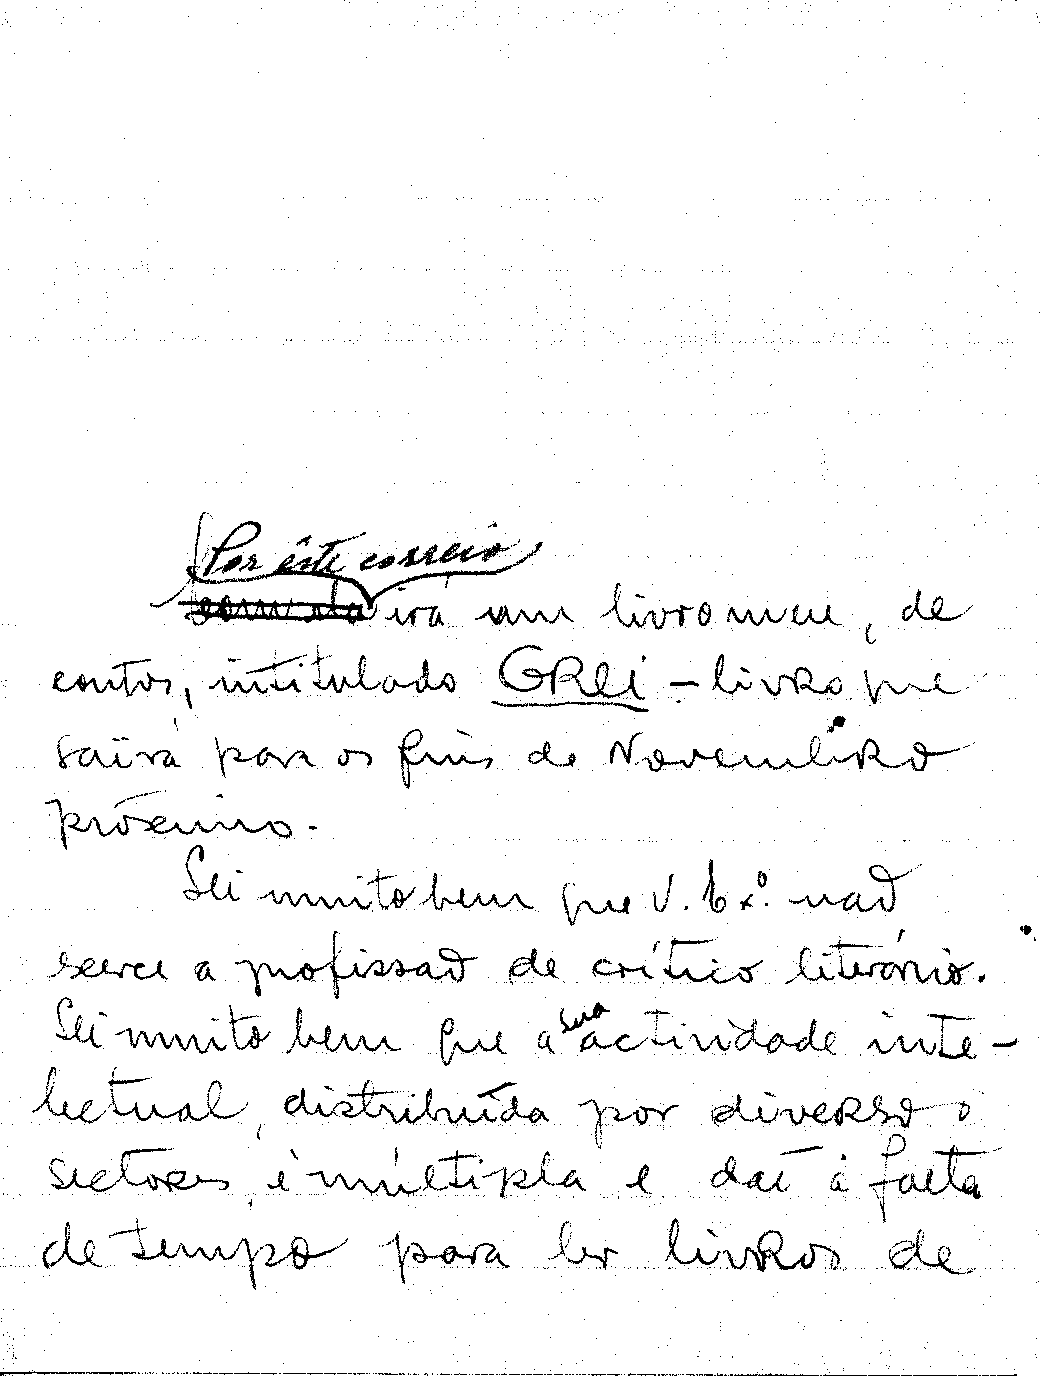 Por êste correio
irá um livro meu, de
contos, intitulado GREI - livro que
saïrá para os fins de Novembro
próximo.
Sei muito bem que V. Exº. não
exerce a profissão de crítico literário.
Sei muito bem que a sua actividade inte-
lectual, distribuída por diversos
sectores, é múltipla e daí a falta
de tempo para ler livros de